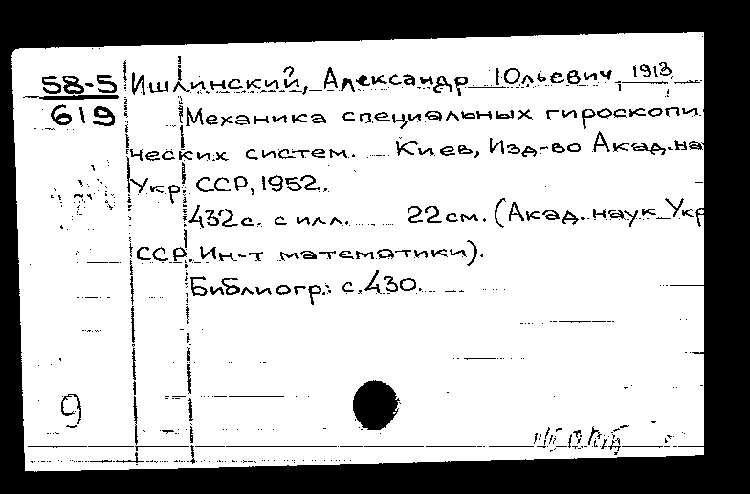 58-5 Ишлинский, Александр Юльевич, 1913
619 Механика специальных гироскопи
ческих систем. Киев, Изд-во Акад. на
Укр ССР, 1952.
432 с. с илл. 22 см. (Акад. наук Укр
ССР. Ин-т математики).
Библиогр.: с. 430.
9